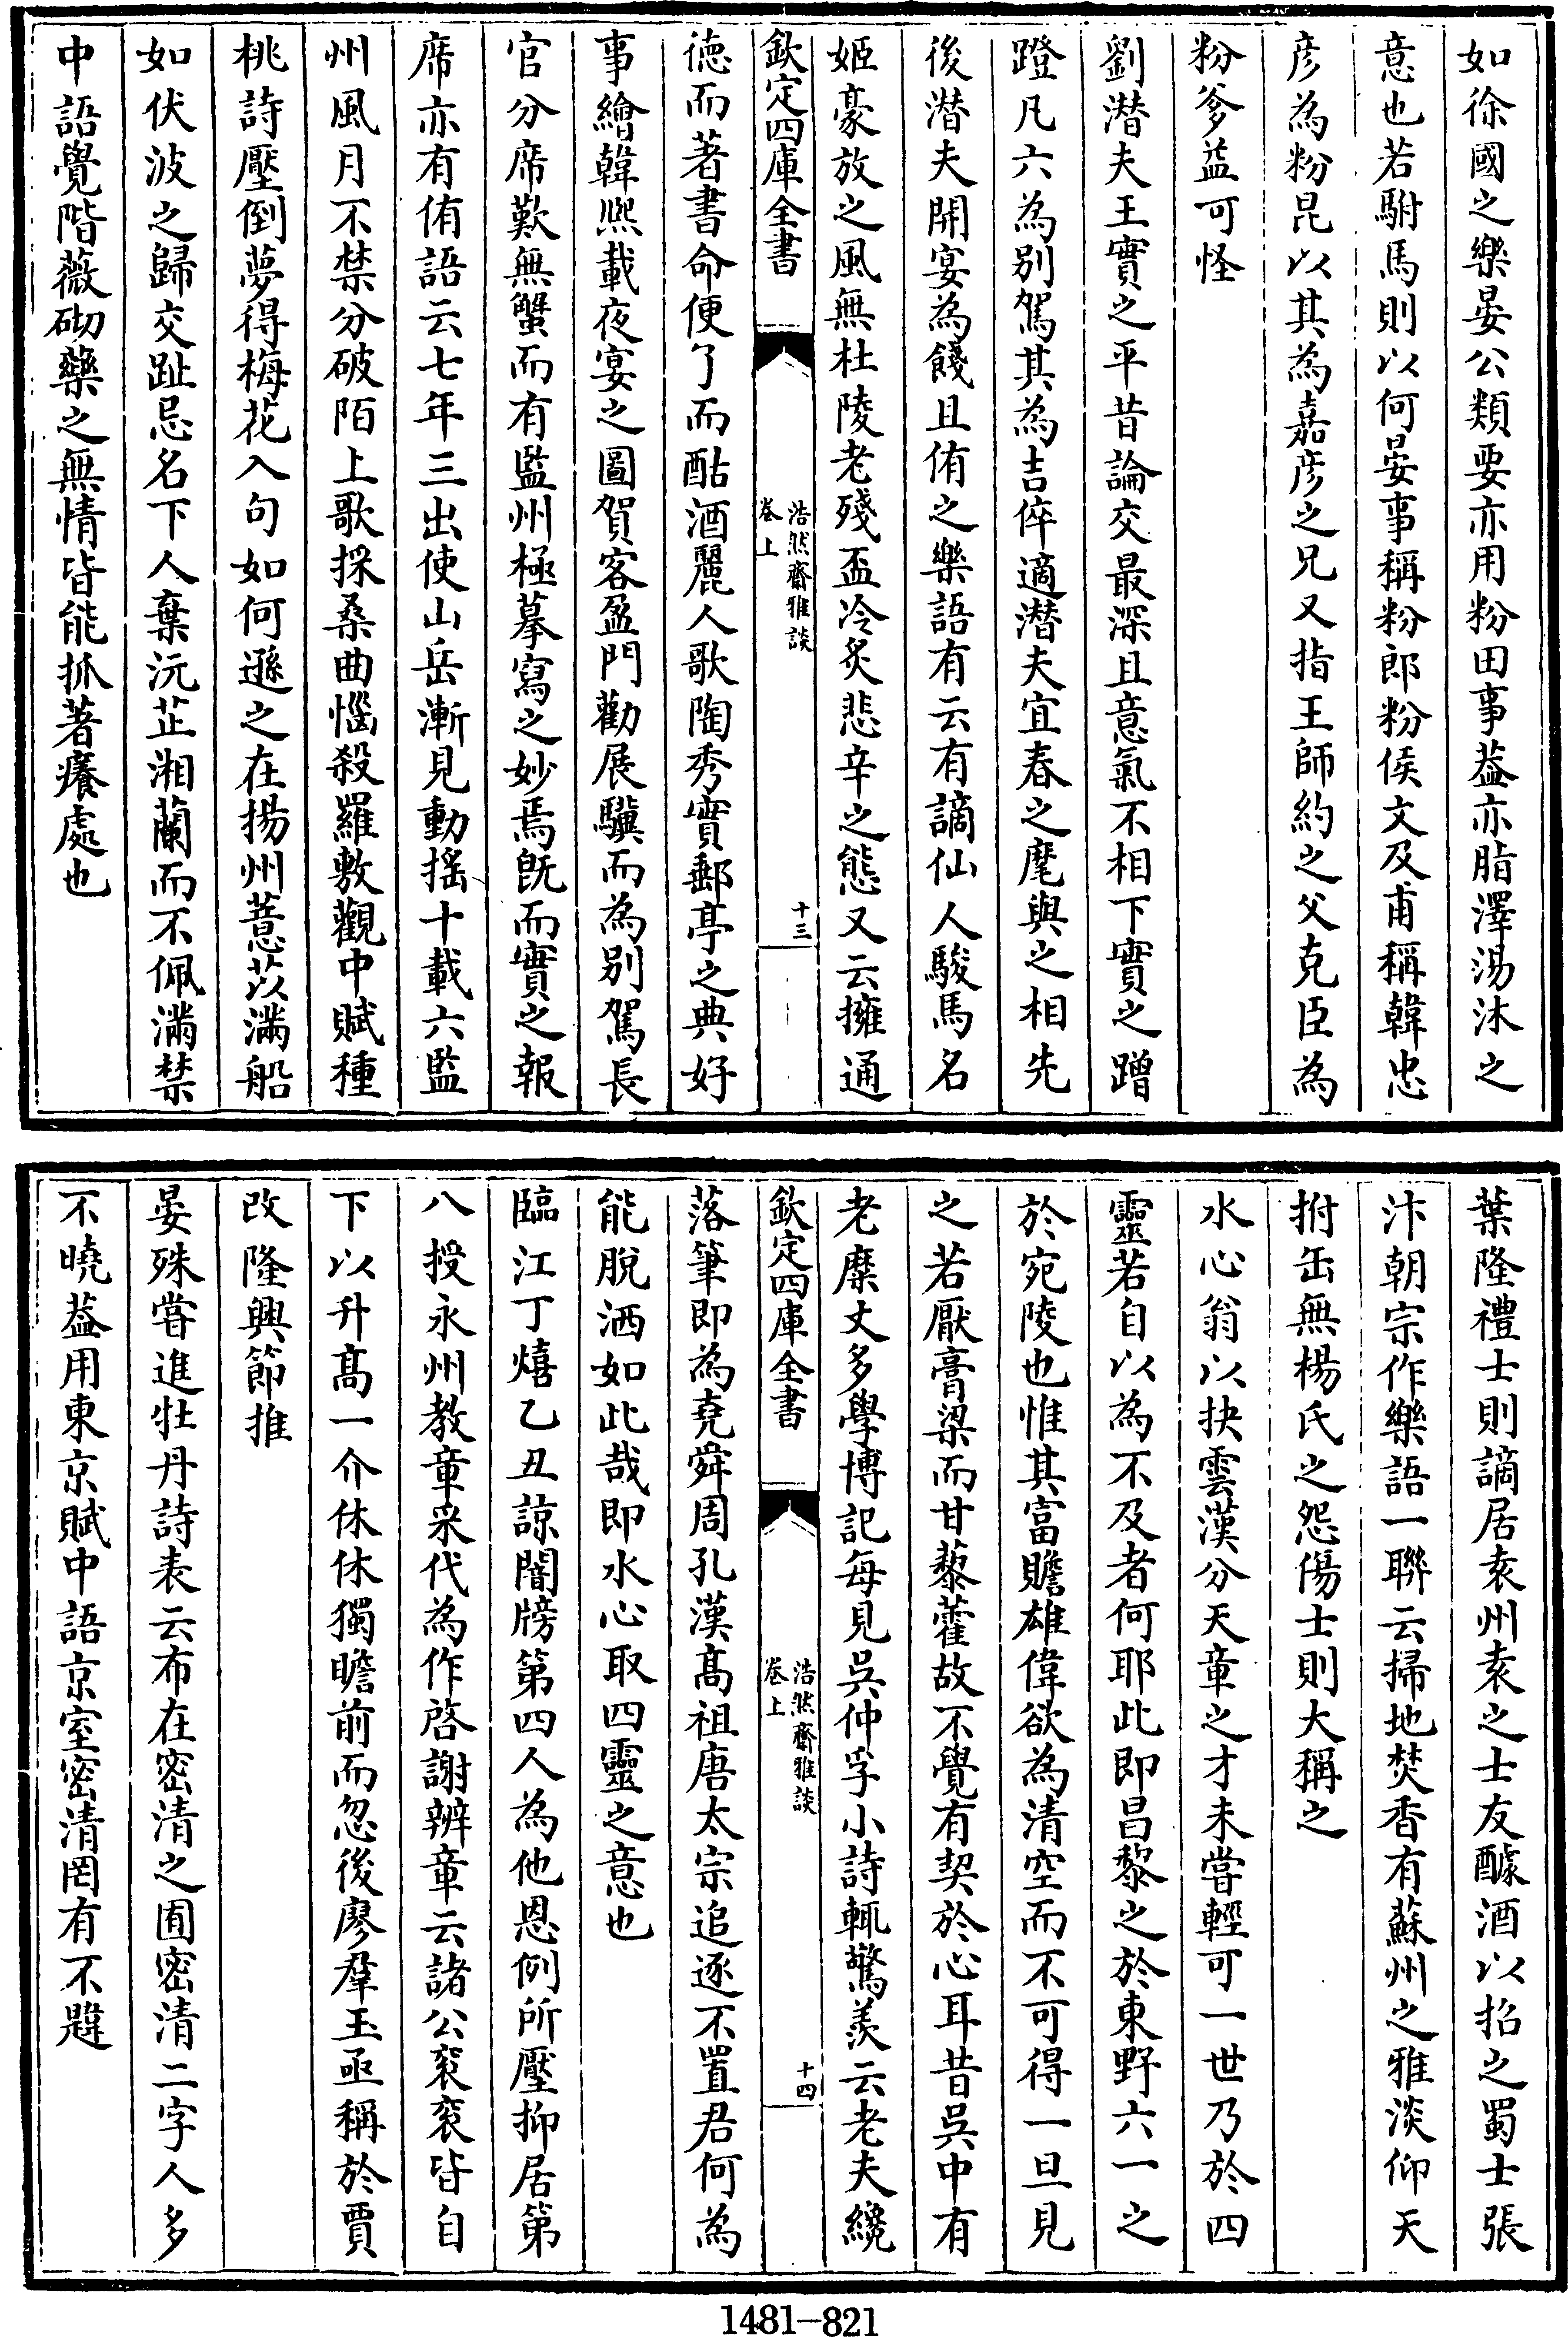 如徐國之樂晏公類要亦用粉田事葢亦脂澤湯沐之
意也若駙馬則以何晏事稱粉郎粉侯文及甫稱韓忠
彦為粉昆以其為嘉彦之兄又指王師約之父克臣為
粉爹益可怪
劉潜夫王實之平昔論交最深且意氣不相下實之蹭
蹬凡六為别駕其為吉倅適潜夫宜春之麾與之相先
後潜夫開宴為餞且侑之樂語有云有謫仙人駿馬名
姬豪放之風無杜陵老殘盃冷炙悲辛之態又云擁通
欽定四庫全書
浩然齋雅談
卷上
十三
徳而著書命便了而酤酒麗人歌陶秀實郵亭之典好
事繪韓熙載夜宴之圖賀客盈門勸展驥而為别駕長
官分席歎無蟹而有監州極摹寫之妙焉旣而實之報
席亦有侑語云七年三出使山岳漸見動揺十載六監
州風月不禁分破陌上歌採桑曲惱殺羅敷觀中賦種
桃詩壓倒夢得梅花入句如何遜之在揚州薏苡滿船
如伏波之歸交趾忌名下人棄沅芷湘蘭而不佩滿禁
中語覺階薇砌藥之無情皆能抓著癢處也
葉隆禮士則謫居袁州袁之士友醵酒以招之蜀士張
汴朝宗作樂語一聯云掃地焚香有蘇州之雅淡仰天
拊缶無楊氏之怨傷士則大稱之
水心翁以抉雲漢分天章之才未嘗輕可一世乃於四
靈若自以為不及者何耶此即昌黎之於東野六一之
於宛陵也惟其富贍雄偉欲為清空而不可得一旦見
之若厭膏粱而甘藜藿故不覺有契於心耳昔吳中有
老糜丈多學博記每見吳仲孚小詩輒驚羡云老夫纔
欽定四庫全書
浩然齋雅談
卷上
十四
落筆即為堯舜周孔漢髙祖唐太宗追逐不置君何為
能脫洒如此哉即水心取四靈之意也
臨江丁熺乙丑諒闇牓第四人為他恩例所壓抑居第
八授永州教章采代為作啓謝辨章云諸公衮衮皆自
下以升髙一介休休獨瞻前而忽後廖羣玉亟稱於賈
改隆興節推
晏殊嘗進牡丹詩表云布在密清之囿密清二字人多
不曉葢用東京賦中語京室密清罔有不韙
1481-821